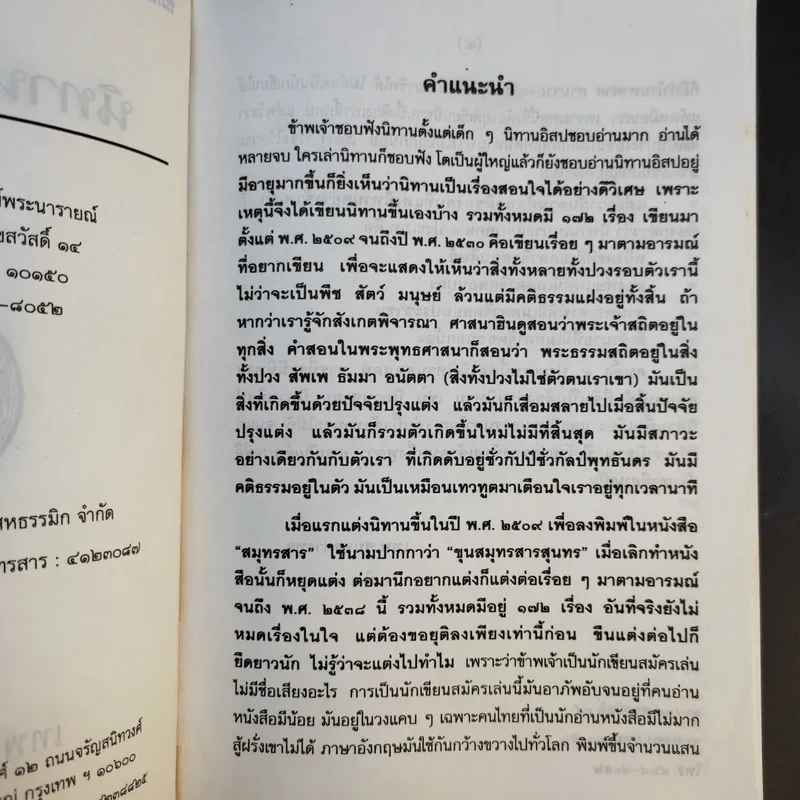 นิทาน
พระนารายณ์
สวัสดิ์ ๑๔
๑๐๑๕๐
-๘๐๕๒
สหธรรมิก จำกัด
ทรสาร : ๔๑๒๓๐๘๗
๑๒ ถนนจรัญสนิทวงศ์
กรุงเทพ ฯ ๑๐๖๐๐
คำแนะนำ
ข้าพเจ้าชอบฟังนิทานตั้งแต่เด็ก ๆ นิทานอิสปชอบอ่านมาก อ่านได้
หลายจบ ใครเล่านิทานก็ชอบฟัง โตเป็นผู้ใหญ่แล้วก็ยังชอบอ่านนิทานอิสปอยู่
มีอายุมากขึ้นก็ยิ่งเห็นว่านิทานเป็นเรื่องสอนใจได้อย่างดีวิเศษ เพราะ
เหตุนี้จึงได้เขียนนิทานขึ้นเองบ้าง รวมทั้งหมดมี ๑๗๒ เรื่อง เขียนมา
ตั้งแต่ พ.ศ. ๒๕๐๙ จนถึงปี พ.ศ. ๒๕๓๐ คือเขียนเรื่อย ๆ มาตามอารมณ์
ที่อยากเขียน เพื่อจะแสดงให้เห็นว่าสิ่งทั้งหลายทั้งปวงรอบตัวเรานี้
ไม่ว่าจะเป็นพืช สัตว์ มนุษย์ ล้วนแต่มีคติธรรมแฝงอยู่ทั้งสิ้น ถ้า
หากว่าเรารู้จักสังเกตพิจารณา ศาสนาฮินดูสอนว่าพระเจ้าสถิตอยู่ใน
ทุกสิ่ง คำสอนในพระพุทธศาสนาก็สอนว่า พระธรรมสถิตอยู่ในสิ่ง
ทั้งปวง สัพเพ ธัมมา อนัตตา (สิ่งทั้งปวงไม่ใช่ตัวตนเราเขา) มันเป็น
สิ่งที่เกิดขึ้นด้วยปัจจัยปรุงแต่ง แล้วมันก็เสื่อมสลายไปเมื่อสิ้นปัจจัย
ปรุงแต่ง แล้วมันก็รวมตัวเกิดขึ้นใหม่ไม่มีที่สิ้นสุด มันมีสภาวะ
อย่างเดียวกันกับตัวเรา ที่เกิดดับอยู่ชั่วกัปป์ชั่วกัลป์พุทธันดร มันมี
คติธรรมอยู่ในตัว มันเป็นเหมือนเทวทูตมาเตือนใจเราอยู่ทุกเวลานาที
เมื่อแรกแต่งนิทานขึ้นในปี พ.ศ. ๒๕๐๙ เพื่อลงพิมพ์ในหนังสือ
“สมุทรสาร” ใช้นามปากกาว่า “ขุนสมุทรสารสุนทร” เมื่อเลิกทำหนัง
สือนั้นก็หยุดแต่ง ต่อมานึกอยากแต่งก็แต่งต่อเรื่อย ๆ มาตามอารมณ์
จนถึง พ.ศ. ๒๕๓๘ นี้ รวมทั้งหมดมีอยู่ ๑๗๒ เรื่อง อันที่จริงยังไม่
หมดเรื่องในใจ แต่ต้องขอยุติลงเพียงเท่านี้ก่อน ขืนแต่งต่อไปก็
ยืดยาวนัก ไม่รู้ว่าจะแต่งไปทำไม เพราะว่าข้าพเจ้าเป็นนักเขียนสมัครเล่น
ไม่มีชื่อเสียงอะไร การเป็นนักเขียนสมัครเล่นนี้มันอาภัพอับจนอยู่ที่คนอ่าน
หนังสือมีน้อย มันอยู่ในวงแคบ ๆ เฉพาะคนไทยที่เป็นนักอ่านหนังสือมีไม่มาก
สู้ฝรั่งเขาไม่ได้ ภาษาอังกฤษมันใช้กันกว้างขวางไปทั่วโลก พิมพ์ขึ้นจำนวนแสน